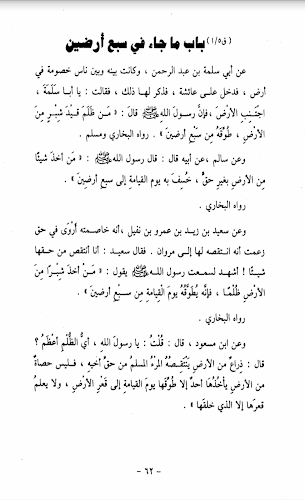 (ق٥/١) باب ما جاء في سبع أرضين
عن أبي سلمة بن عبد الرحمن ، وكانت بينه وبين ناس خصومة في
أرض ، فدخل على عائشة ، فذكر لها ذلك ، فقالت : يا أبا سَلَمَة ،
اجتَنِبِ الأرْضَ ، فإنَّ رسولَ اللهِ ﷺ قالَ : « مَن ظَلَمَ قِيدَ شِبْرٍ مِنَ
الأرْضِ ، طُوِّقَهُ مِن سَبْعِ أرضينَ » . رواه البخاري ومسلم .
وعن سالم ، عن أبيه قال : قال رسول الله ﷺ : « مَن أخَذَ شيئًا
مِن الأرضِ بغيرِ حقٍّ ، خُسِفَ به يوم القيامة إلى سبع أرضينَ » .
رواه البخاري .
وعن سعيد بن زيد بن عمرو بن نفيل ، أنه خاصمته أروَى في حق
زعمت أنه انتقصه لها إلى مروان . فقال سعيد : أنا أنتقص من حقها
شيئًا ! أشهد لسمعت رسول الله ﷺ يقول : « مَنْ أخذَ شِبْرًا مِنَ
الأرْضِ ظُلْمًا ، فإنَّه يُطوَّقُهُ يومَ القيامَةِ مِن سبع أرضينَ » .
رواه البخاري .
وعن ابن مسعود ، قال : قُلْتُ : يا رسولَ اللهِ ، أيُّ الظُّلْمِ أعظَمُ ؟
قال : ذِراعٌ من الأرضِ يَنْتَقِصُهُ المرْءُ المسلمُ من حقِّ أخيهِ ، فليس حصاةٌ
من الأرضِ يأخُذُها أحدٌ إلا طُوِّقَها يومَ القيامَةِ إلى قَعْرِ الأرْضِ ، ولا يعلمُ
قعرَها إلا الذي خلقَها » .
- ٦٢ -